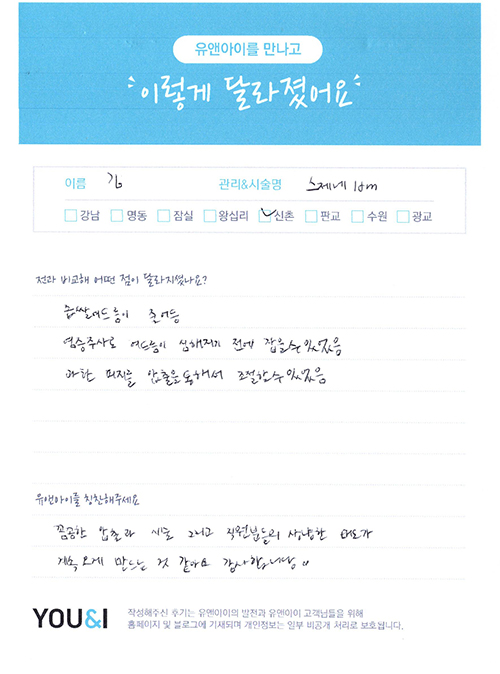 유앤아이를 만나고
이렇게 달라졌어요
이름 김 관리&시술명
강남 명동 잠실 왕십리 신촌 판교 수원 광교
전과 비교해 어떤 점이 달라지셨나요?
좁쌀여드름이 줄어듬
염증주사로 여드름이 심해지기 전에 잡을수 있었음
과한 피지를 압출을 통해서 조절할수 있었음
유앤아이를 칭찬해주세요
꼼꼼한 압출과 시술 그리고 직원분들의 상냥한 태도가
계속 오게 만드는 것 같아요 감사합니당
YOU&I
작성해주신 후기는 유앤아이의 발전과 유앤아이 고객님들을 위해
홈페이지 및 블로그에 기재되며 개인정보는 일부 비공개 처리로 보호됩니다.